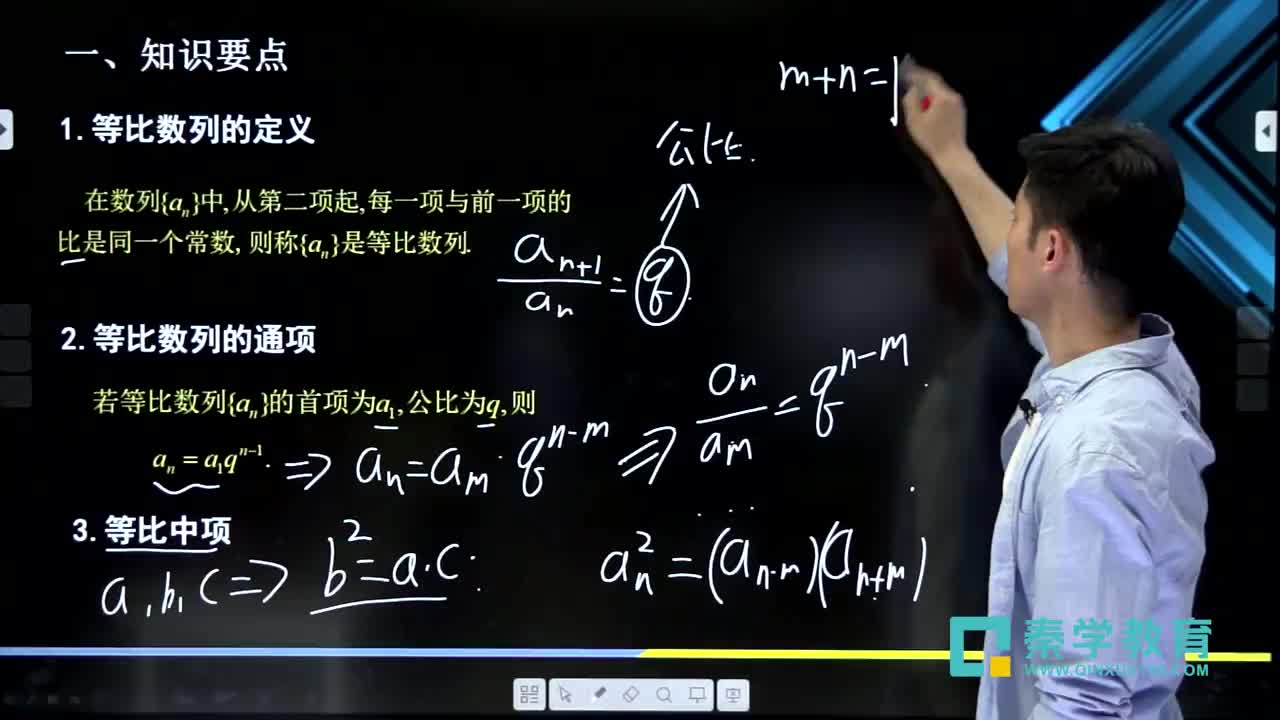 一、知识要点
m+n=p
1.等比数列的定义
公比.
在数列{aₙ}中,从第二项起,每一项与前一项的
比是同一个常数, 则称{aₙ}是等比数列.
aₙ₊₁/aₙ = q
2.等比数列的通项
若等比数列{aₙ}的首项为a₁,公比为q,则
aₙ = a₁qⁿ⁻¹. ⇒ aₙ=aₘ·qⁿ⁻ᵐ ⇒ aₙ/aₘ = qⁿ⁻ᵐ
3.等比中项
a,b,c ⇒ b²=a·c
aₙ²=(aₙ₋ₘ)(aₙ₊ₘ)
秦学教育